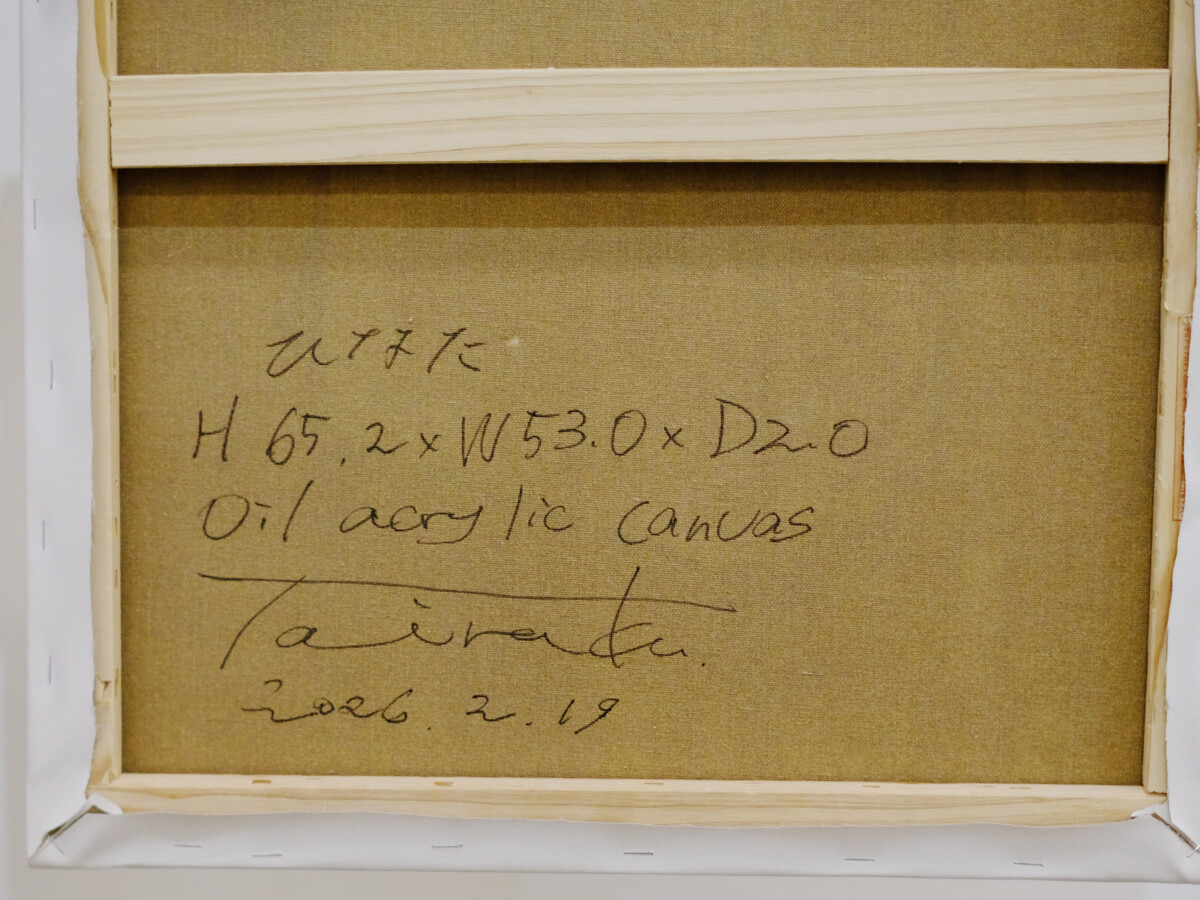 ひなた
H 65.2×W53.0×D2.0
Oil acrylic canvas
Tairaku.
2026.2.19